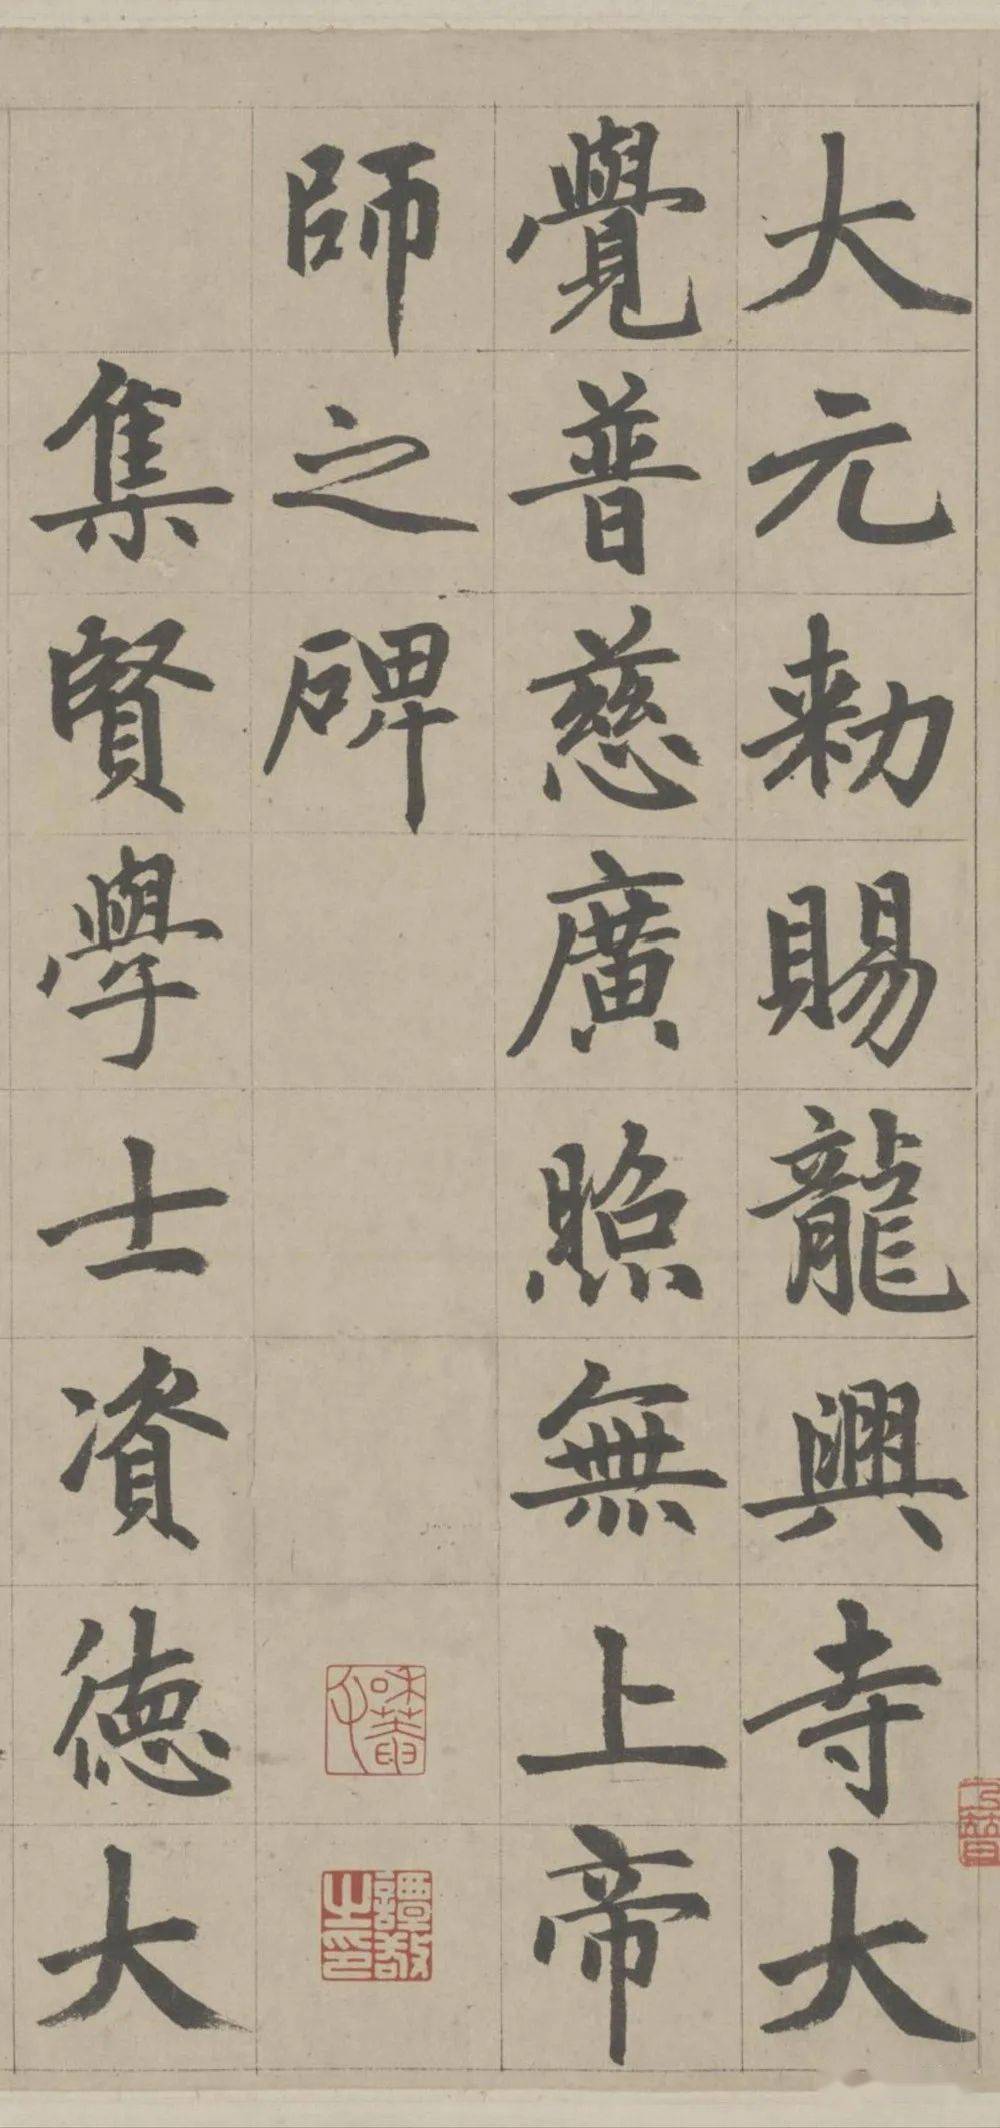 大元勑賜龍興寺大
覺普慈廣照無上帝
師之碑
譚敬之印
集賢學士資德大